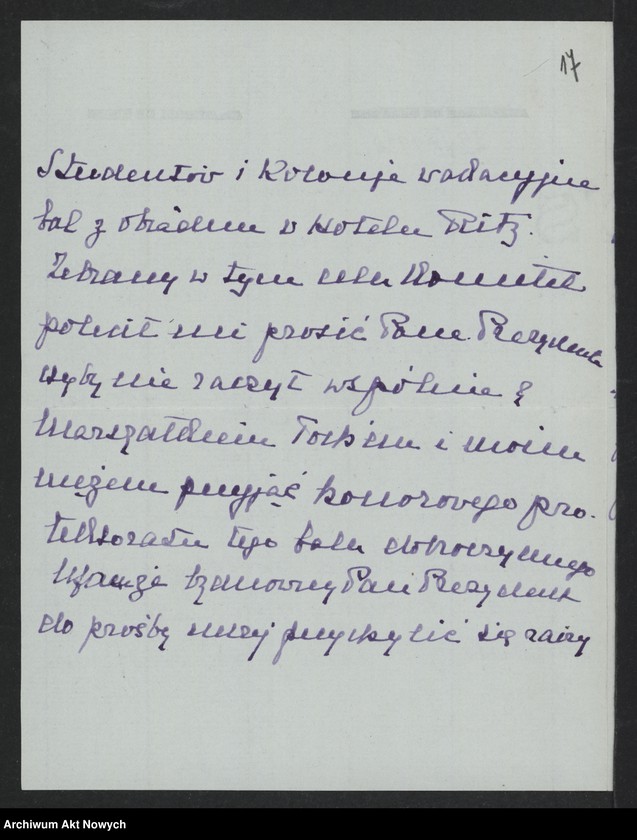 17
Studentów i Kolonje wakacyjne
bal z obiadem w Hotelu Ritz.
Zebrany w tym celu Komitet
polecił mi prosić Pana Prezydenta
czyby nie raczył wspólnie z
Marszałkiem Foch'em i moim
mężem przyjąć honorowego pro-
tektoratu tego balu dobroczynnego
Ufając że Szanowny Pan Prezydent
do prośby mojej przychylić się raczy
Archiwum Akt Nowych